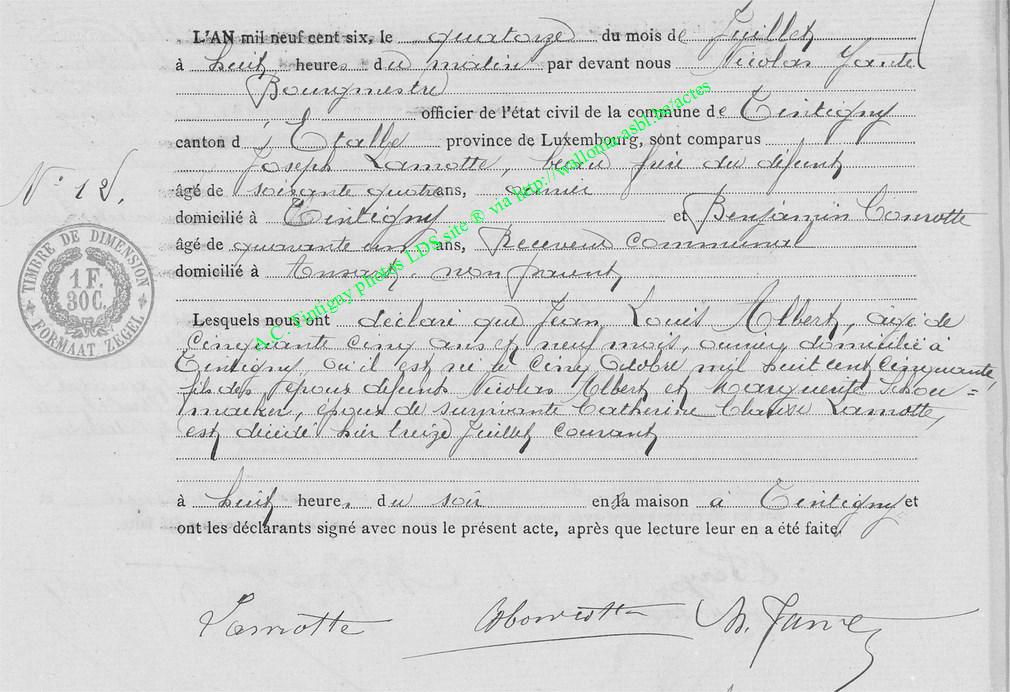 L'AN mil neuf cent six, le quatorze du mois de Juillet
à huit heures du matin par devant nous Nicolas
Bourgmestre
officier de l'état civil de la commune de Tintigny
canton d'Etalle province de Luxembourg, sont comparus
Joseph Lamotte, beau frère du défunt
N°
âgé de soixante quatre ans, ouvrier
domicilié à Tintigny et Benjamin
âgé de quarante ans, Receveur Communal
domicilié à Ansart, non parent
TIMBRE DE DIMENSION
1 F.
30 C.
FORMAAT ZEGEL
A.C. Tintigny photos LDS site ® via http://wallonia.asbl.be/actes
Lesquels nous ont déclaré que Jean Louis Albert, âgé de
cinquante cinq ans et neuf mois, ouvrier domicilié à
Tintigny, où il est né le cinq Octobre mil huit cent cinquante,
fils des époux défunts Nicolas Albert et Marguerite Schou=
macker, époux de survivante Catherine Lamotte,
est décédé hier treize Juillet courant
à huit heure, du soir en sa maison à Tintigny et
ont les déclarants signé avec nous le présent acte, après que lecture leur en a été faite.
Lamotte